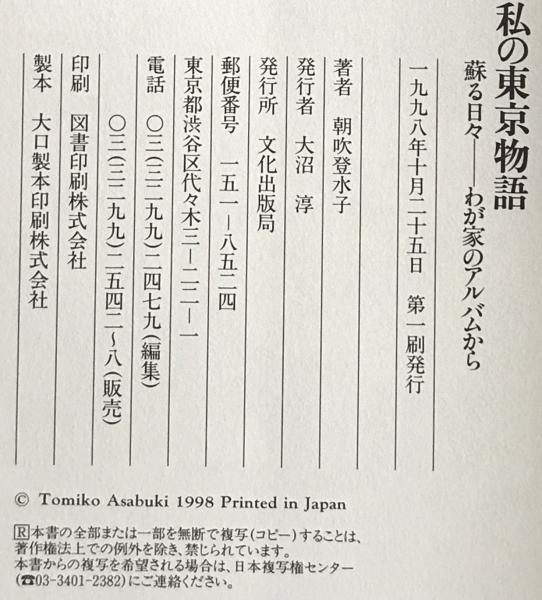 私の東京物語
蘇る日々――わが家のアルバムから
一九九八年十月二十五日　第一刷発行
著者　朝吹登水子
発行者　大沼　淳
発行所　文化出版局
郵便番号　一五一―八五二四
東京都渋谷区代々木三―二二―一
電話　〇三(三二九九)二四七九(編集)
〇三(三二九九)二五四二～八(販売)
印刷　図書印刷株式会社
製本　大口製本印刷株式会社
© Tomiko Asabuki 1998 Printed in Japan
Ⓡ本書の全部または一部を無断で複写(コピー)することは、
著作権法上での例外を除き、禁じられています。
本書からの複写を希望される場合は、日本複写権センター
(☎03-3401-2382)にご連絡ください。